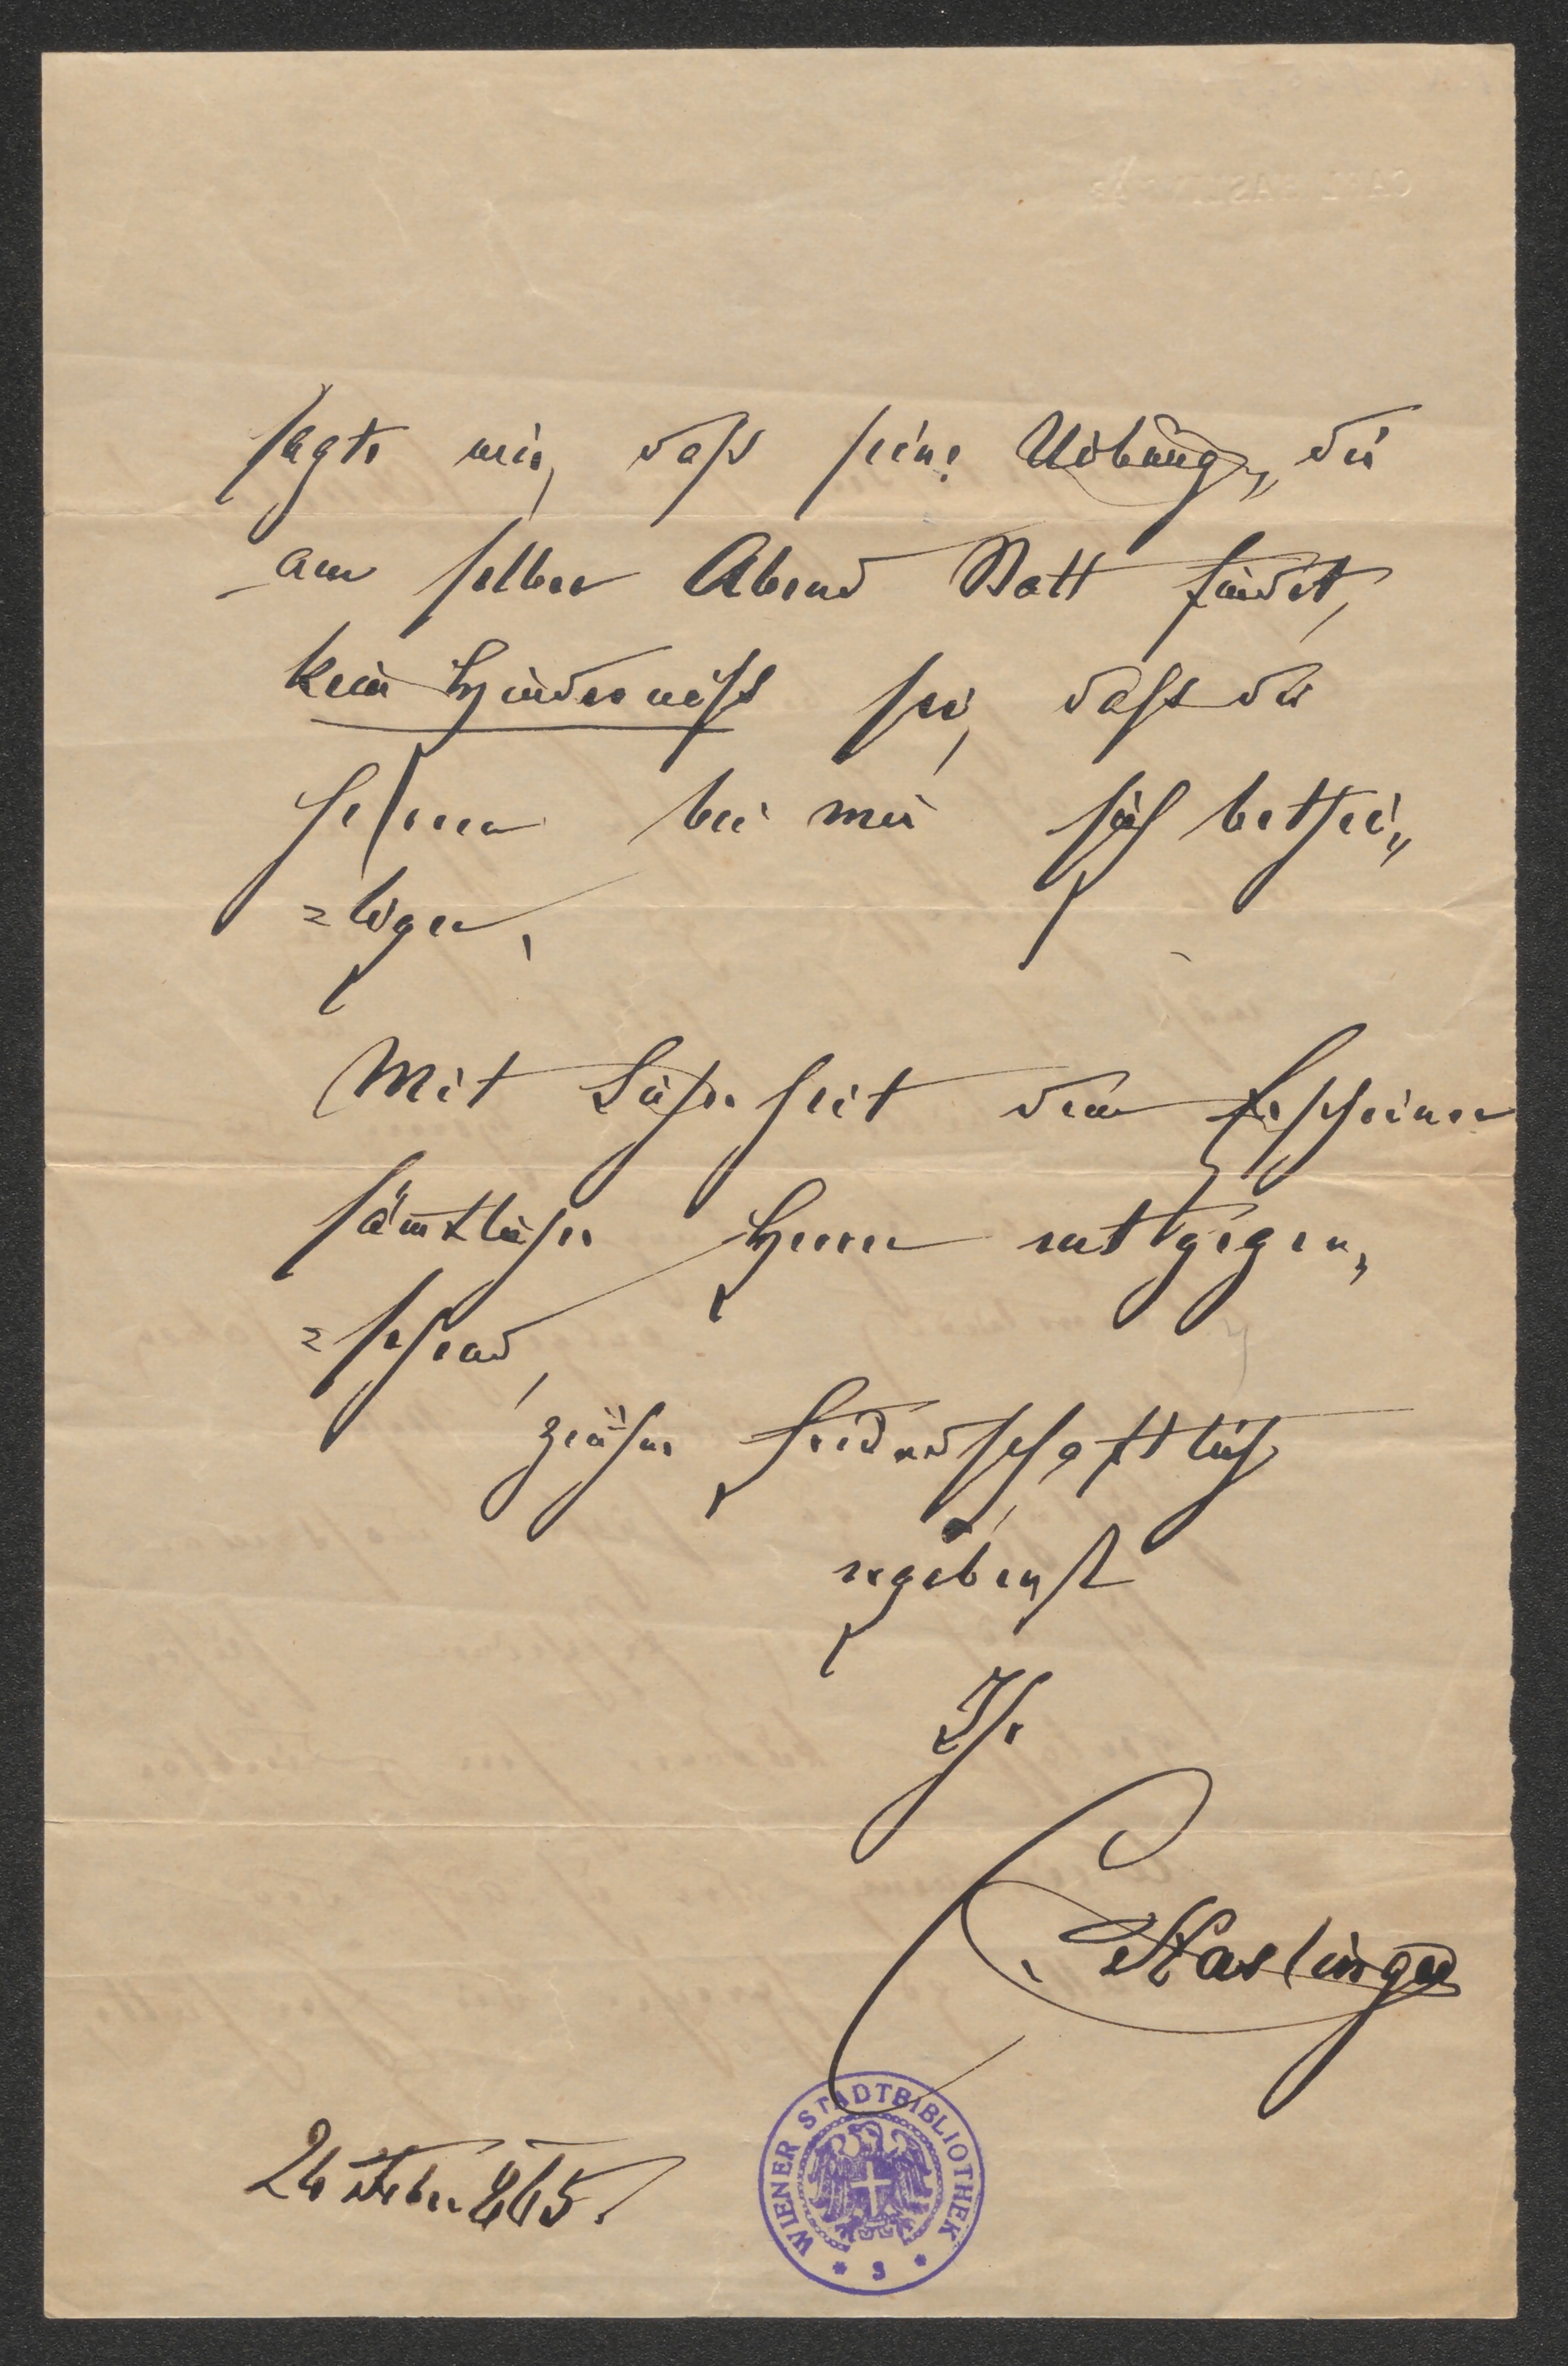 sagte mir, daß seine Uibung, die
am selben Abend Statt findet,
kein Hinderniß sei, daß die
Herren bei mir sich bethei„
=ligen.
Mit Sicherheit dem Erscheinen
sämtlicher Herren entgegen„
=sehend,
zeichne freundschaftlich
ergebenst
Ihr
C. Haslinger
26 Feber 865.
WIENER STADTBIBLIOTHEK